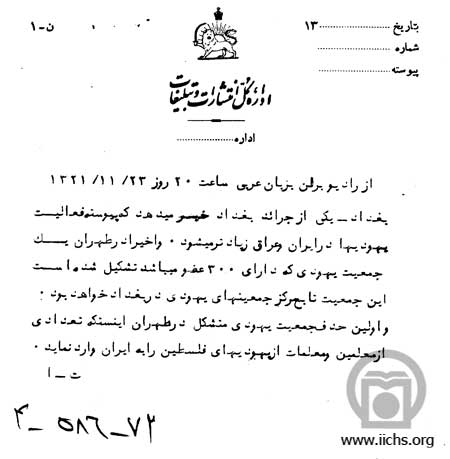 تاریخ ........................ ۱۳
شماره ........................
پیوسته ........................
ن-۱
اداره کل انتشارات و تبلیغات
اداره ........................
از رادیو برلن بزبان عربی ساعت ۲۰ روز ۲۳/ ۱۱/ ۱۳۲۱
بغداد ـ یکی از جرائد بغداد خبر میدهد که پیوسته فعالیت
یهودیها در ایران و عراق زیادتر میشود ۰ و اخیرا در طهران یک
جمعیت یهودی که دارای ۳۰۰ عضو میباشد تشکیل شده است
این جمعیت تابع مرکز جمعیتهای یهودی در بغداد خواهد بود ۰
و اولین هدف جمعیت یهودی متشکل در طهران اینستکه تعدادی
از معلمین و معلمات از یهودیهای فلسطین را به ایران وارد نماید ۰
ت ـ ا
۴ـ ۵۸۶ ـ ۷۲
www.iichs.org